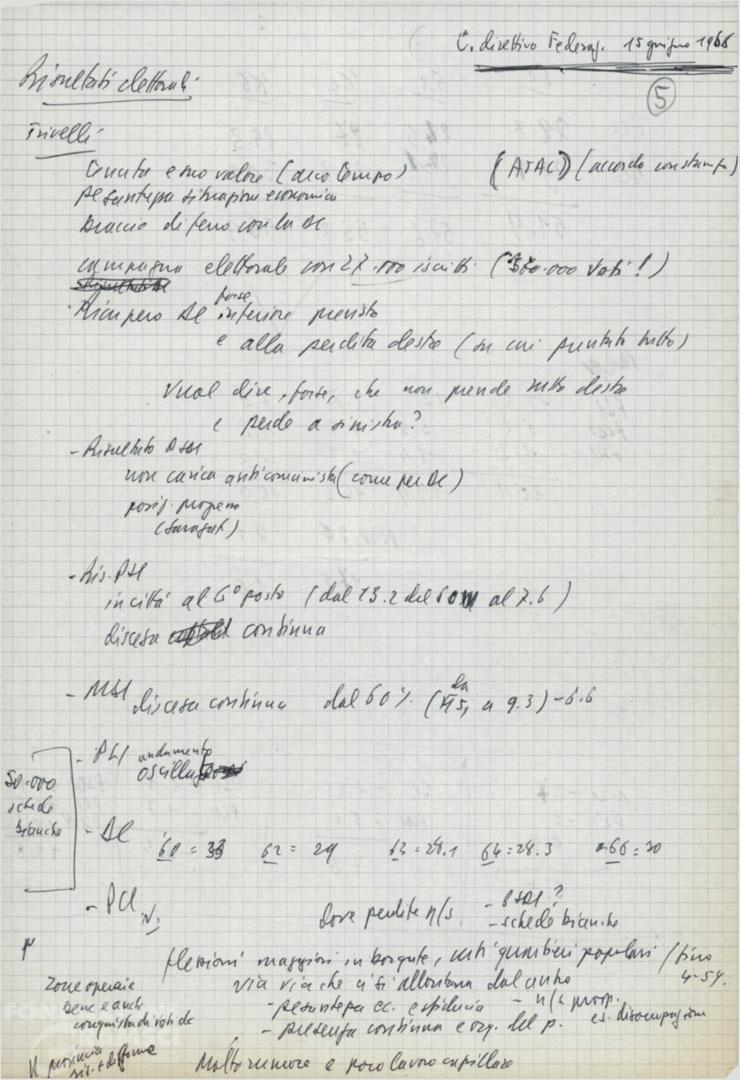 C. direttivo Federaz. 15 giugno 1966
5
Risultati elettorali
Trivelli
Giunta e suo valore (arco tempo)
(ATAC) (accordo constampa)
pesantezza situazione economica
braccio di ferro con la DC
campagna elettorale con 27.000 iscritti (360.000 voti!)
Ricupero DC forse inferiore previsto
e alla perdita destre (su cui puntato tutto)
Vual dire, forse, che non prende tutto destre
e perde a sinistra?
- Risultato PSDI
non carica anticomunista (come per DC)
(Saragat)
- Ris. PSI
in città al 6° posto (dal 13.2 del 60 al 7.6)
discesa continua
- MSI discesa continua dal 60% (da 15, a 9.3) - 6.6
- PLI andamento
50.000
schede
bianche
- DC 60 = 33 62 = 29 63 = 28.1 64 = 28.3 66 = 30
- PCI N.
dove perdite n/s - PSDI?
- schede bianche
flessioni maggiori in borgate, quartieri popolari (fino
via via che ci si allontana dal centro 4-5%.
Zone operaie
bene e anche
conquista di voti dc
- pesantezza ec. e sfiducia - n/s prop.
es. disoccupazione
- presenza continua e org. del p.
Molto rumore e poco lavoro capillare